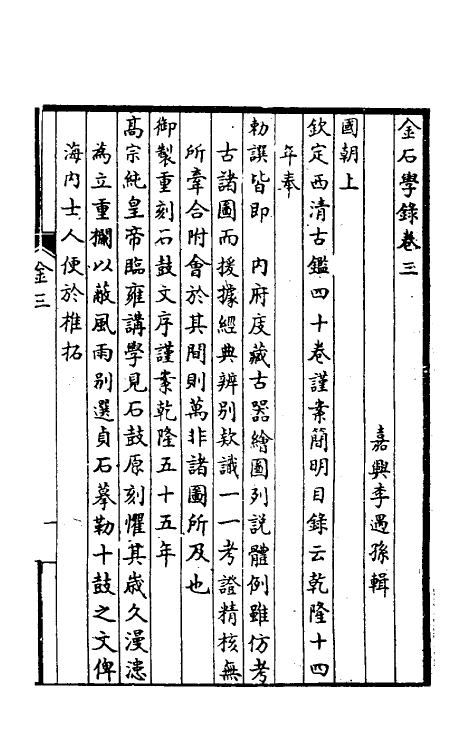 金石學錄卷三
嘉興李遇孫輯
國朝上
欽定西清古鑑四十卷謹案簡明目錄云乾隆十四
年奉
勅譔皆即　內府庋藏古器繪圖列說體例雖仿考
古諸圖而援據經典辨別欵識一一考證精核無
所牽合附會於其間則萬非諸圖所及也
御製重刻石鼓文序謹案乾隆五十五年
高宗純皇帝臨雍講學見石鼓原刻懼其歲久漫漶
為立重欄以蔽風雨別選貞石摹勒十鼓之文俾
海內士人便於椎拓
金三
一